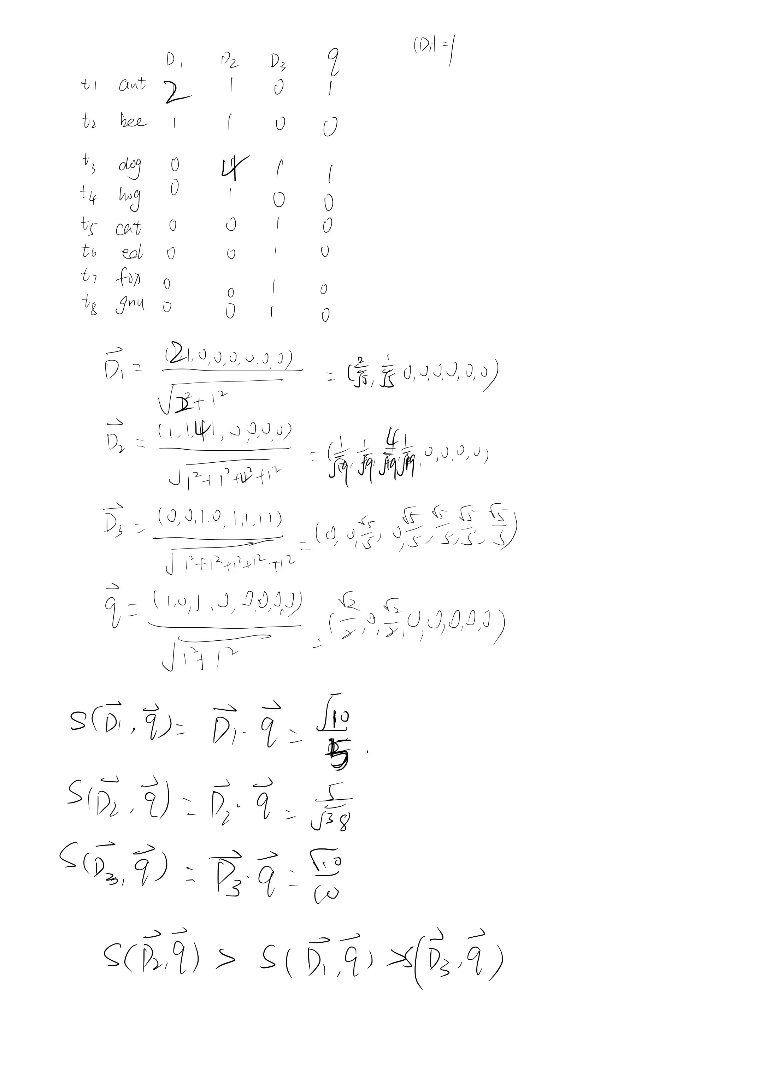 D₁ D₂ D₃ q |D₁| = 1
t₁ ant 2 1 0 1
t₂ bee 1 1 0 0
t₃ dog 0 4 1 1
t₄ hog 0 1 0 0
t₅ cat 0 0 1 0
t₆ eel 0 0 1 0
t₇ fox 0 0 1 0
t₈ gnu 0 0 1 0
D⃗₁ = (2,1,0,0,0,0,0,0) / √(2²+1²) = (2/√5, 1/√5, 0,0,0,0,0,0)
D⃗₂ = (1,1,4,1,0,0,0,0) / √(1²+1²+4²+1²) = (1/√19, 1/√19, 4/√19, 1/√19, 0,0,0,0)
D⃗₃ = (0,0,1,0,1,1,1,1) / √(1²+1²+1²+1²+1²) = (0, 0, √5/5, 0, √5/5, √5/5, √5/5, √5/5)
q⃗ = (1,0,1,0,0,0,0,0) / √(1²+1²) = (√2/2, 0, √2/2, 0,0,0,0,0)
S(D⃗₁, q⃗) = D⃗₁·q⃗ = √10/5.
S(D⃗₂, q⃗) = D⃗₂·q⃗ = 5/√38
S(D⃗₃, q⃗) = D⃗₃·q⃗ = √10/10
S(D⃗₂, q⃗) > S(D⃗₁, q⃗) > S(D⃗₃, q⃗)